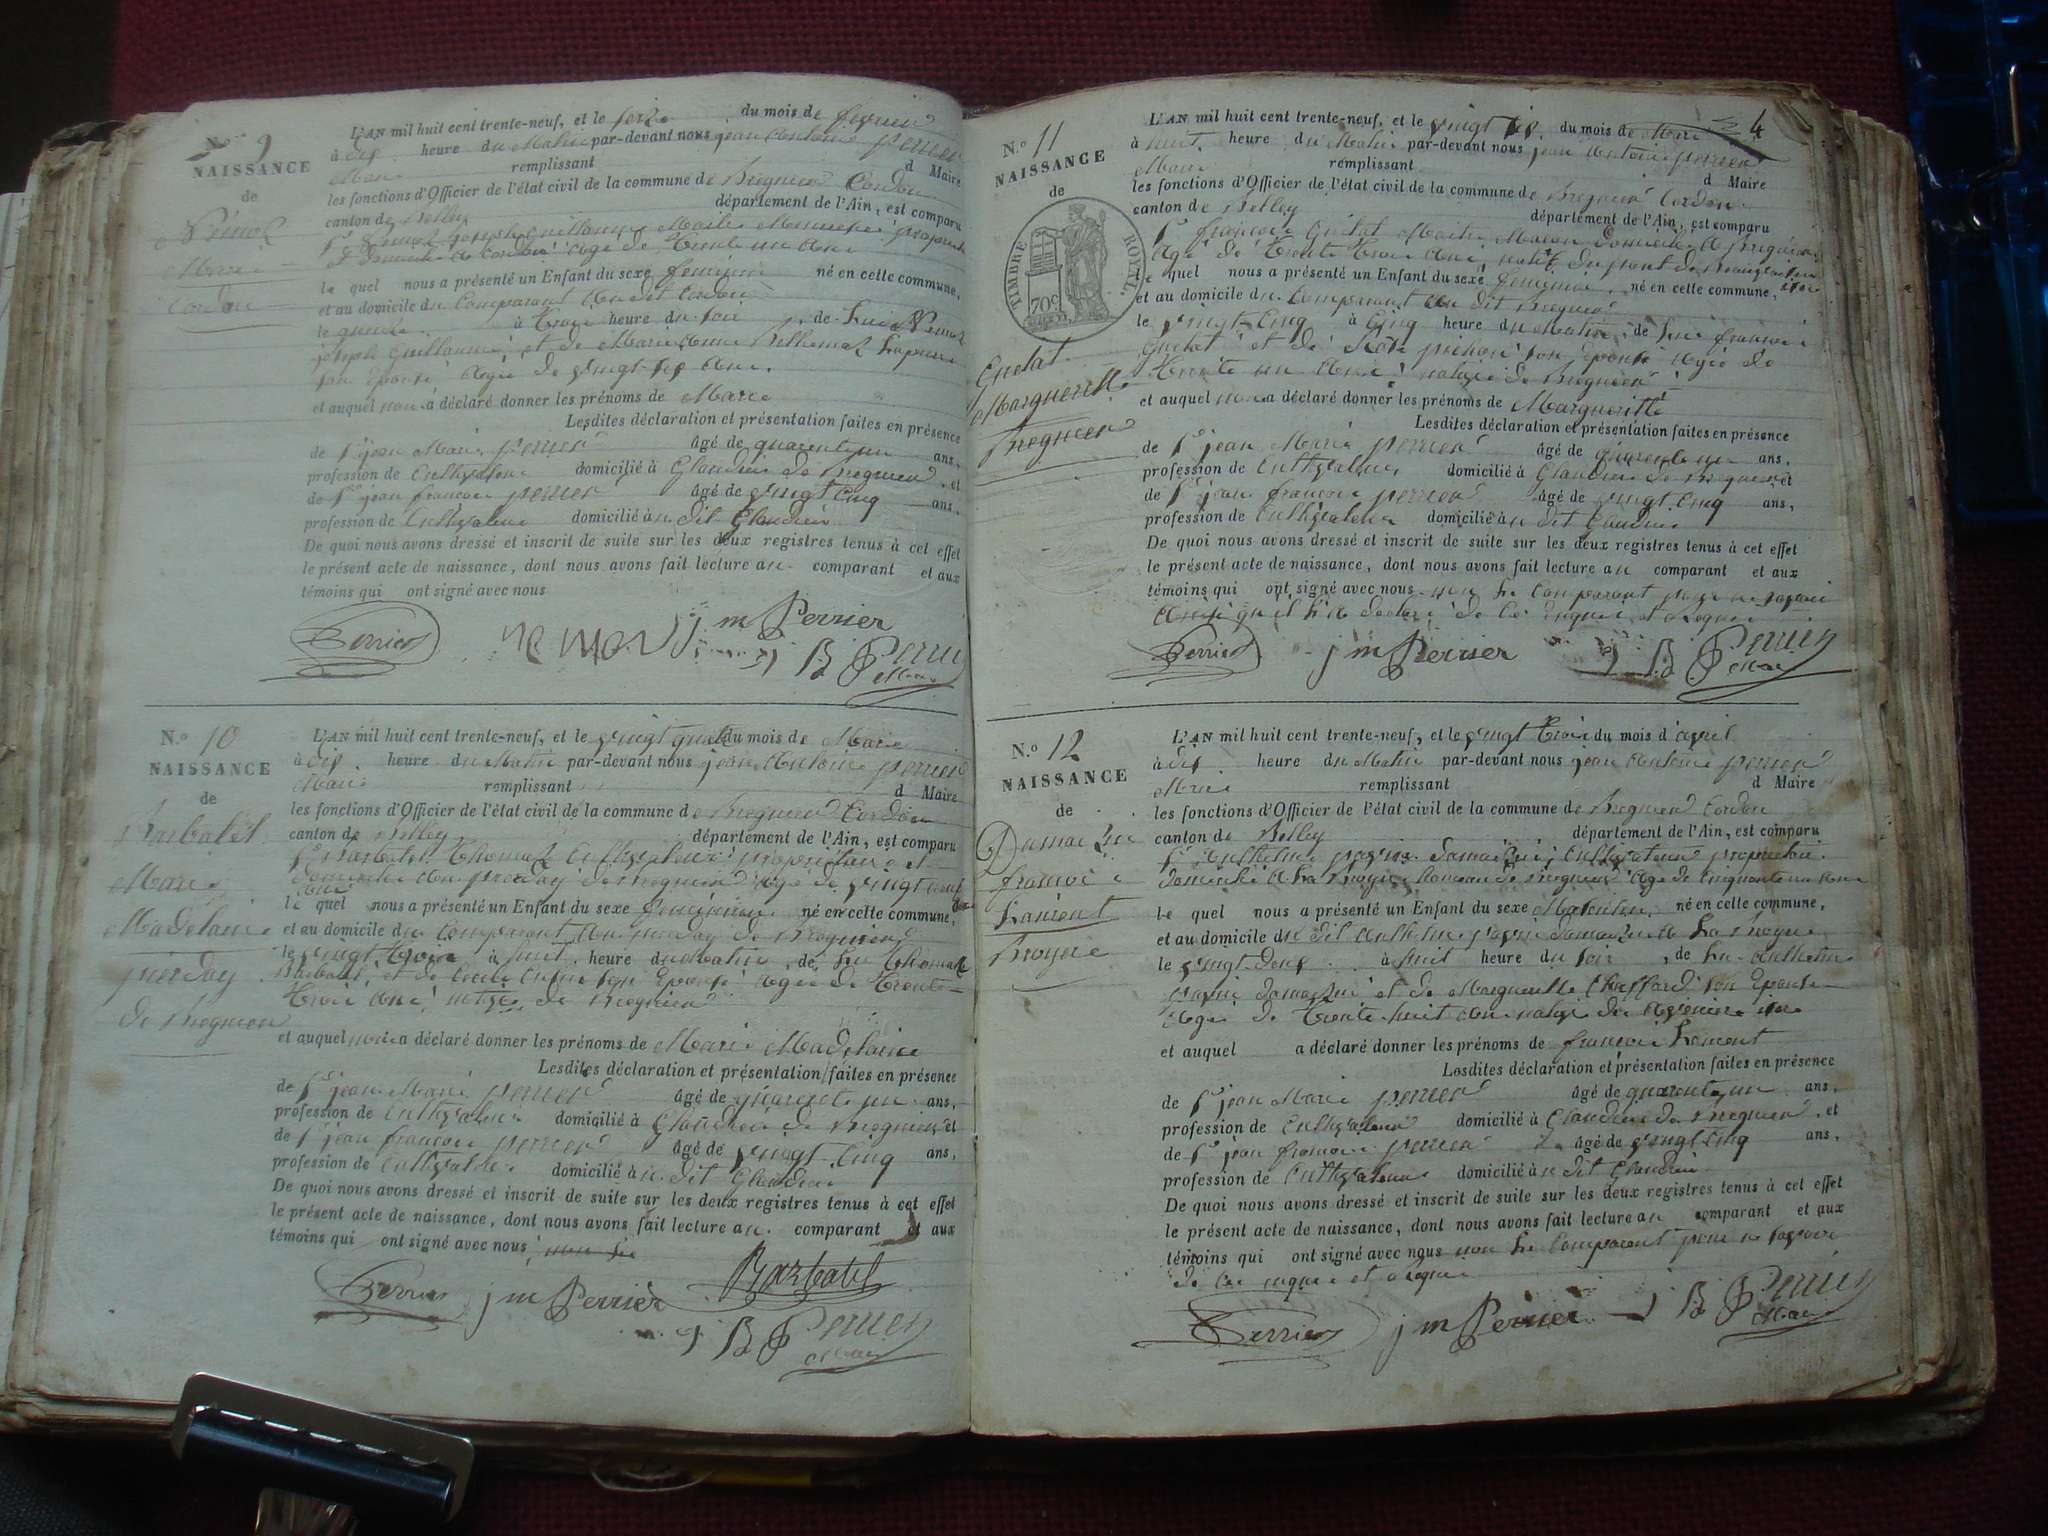 N.o 9
NAISSANCE
de
Marie
Cordon
L'AN mil huit cent trente-neuf, et le seize du mois de février
à dix heure du Matin par-devant nous jean Antoine perrier
Maire remplissant d Maire
les fonctions d'Officier de l'état civil de la commune de Bregnier Cordon
canton de Belley département de l'Ain, est comparu
domicilié à Cordon agé de Trente un ans
le quel nous a présenté un Enfant du sexe feminin né en cette commune,
et au domicile du Comparant au dit Cordon
le quinze à Trois heure du soir, de lui
joseph guillaume et de Marie
son Epouse Agée de Vingt six ans.
et auquel nous a déclaré donner les prénoms de Marie
Lesdites déclaration et présentation faites en présence
de Sr jean Marie perrier âgé de quarente un ans,
profession de Cultivateur domicilié à Glandieu de Bregnier, et
de Sr jean francois perrier âgé de vingt Cinq ans,
profession de Cultivateur domicilié à u dit Glandieu
De quoi nous avons dressé et inscrit de suite sur les deux registres tenus à cet effet
le présent acte de naissance, dont nous avons fait lecture au comparant et aux
témoins qui ont signé avec nous
Perrier j m Perrier
J B Perrier
Maire
N.o 10
NAISSANCE
de
Barbatel
Marie
Madelaine
de Bregnier
L'AN mil huit cent trente-neuf, et le vingt quatre du mois de Mars
à dix heure du Matin par-devant nous jean Antoine perrier
Maire remplissant d Maire
les fonctions d'Officier de l'état civil de la commune de Bregnier Cordon
canton de Belley département de l'Ain, est comparu
Sr Barbatel Thomas Cultivateur proprietaire et
domicilié de Bregnier agé de vingt neuf
ans
le quel nous a présenté un Enfant du sexe feminin né en cette commune,
et au domicile du Comparant de Bregnier
le vingt trois à huit heure du Matin, de lui Thomas
Barbatel et de son Epouse Agée de Trente
Trois ans native de Bregnier
et auquel nous a déclaré donner les prénoms de Marie Madelaine
Lesdites déclaration et présentation faites en présence
de Sr jean Marie perrier âgé de quarente un ans,
profession de Cultivateur domicilié à Glandieu de Bregnier, et
de Sr jean francois perrier âgé de vingt Cinq ans,
profession de Cultivateur domicilié à u dit Glandieu
De quoi nous avons dressé et inscrit de suite sur les deux registres tenus à cet effet
le présent acte de naissance, dont nous avons fait lecture au comparant et aux
témoins qui ont signé avec nous
Perrier j m Perrier Barbatel
J B Perrier
Maire
4
N.o 11
NAISSANCE
de
TIMBRE ROYAL.
70c
Margueritte
Bregnier
L'AN mil huit cent trente-neuf, et le vingt six du mois de Mars
à huit heure du Matin par-devant nous jean Antoine perrier
Maire remplissant d Maire
les fonctions d'Officier de l'état civil de la commune de Bregnier Cordon
canton de Belley département de l'Ain, est comparu
Sr francois Maitre Macon domicilié à Bregnier
Agé de Trente Trois ans natif du pont de
le quel nous a présenté un Enfant du sexe feminin né en cette commune,
et au domicile du Comparant au dit Bregnier
le vingt Cinq à Cinq heure du Matin, de lui francois
et de son Epouse Agée de
Trente un ans native de Bregnier
et auquel nous a déclaré donner les prénoms de Margueritte
Lesdites déclaration et présentation faites en présence
de Sr jean Marie perrier âgé de quarente un ans,
profession de Cultivateur domicilié à Glandieu de Bregnier et
de Sr jean francois perrier âgé de vingt Cinq ans,
profession de Cultivateur domicilié à u dit Glandieu
De quoi nous avons dressé et inscrit de suite sur les deux registres tenus à cet effet
le présent acte de naissance, dont nous avons fait lecture au comparant et aux
témoins qui ont signé avec nous non le Comparant pour ne savoir
Ainsi qu'il l'a declaré de ce enquis et Requis
Perrier j m Perrier J B Perrier
Maire
N.o 12
NAISSANCE
de
francois
Laurent
L'AN mil huit cent trente-neuf, et le vingt Trois du mois d'avril
à dix heure du Matin par-devant nous jean Antoine perrier
Maire remplissant d Maire
les fonctions d'Officier de l'état civil de la commune de Bregnier Cordon
canton de Belley département de l'Ain, est comparu
Sr Anthelme Cultivateur proprietaire
domicilié à la hameau de Bregnier Agé de Cinquante un ans
le quel nous a présenté un Enfant du sexe Masculin né en cette commune,
et au domicile du dit Anthelme
le vingt deux à huit heure du soir, de lui Anthelme
et de Margueritte son Epouse
Agée de Trente huit ans native
et auquel a déclaré donner les prénoms de francois Laurent
Lesdites déclaration et présentation faites en présence
de Sr jean Marie perrier âgé de quarente un ans,
profession de Cultivateur domicilié à Glandieu de Bregnier, et
de Sr jean francois perrier âgé de vingt Cinq ans,
profession de Cultivateur domicilié à u dit Glandieu
De quoi nous avons dressé et inscrit de suite sur les deux registres tenus à cet effet
le présent acte de naissance, dont nous avons fait lecture au comparant et aux
témoins qui ont signé avec nous non le Comparant pour ne savoir
de ce enquis et Requis
Perrier j m Perrier J B Perrier
Maire